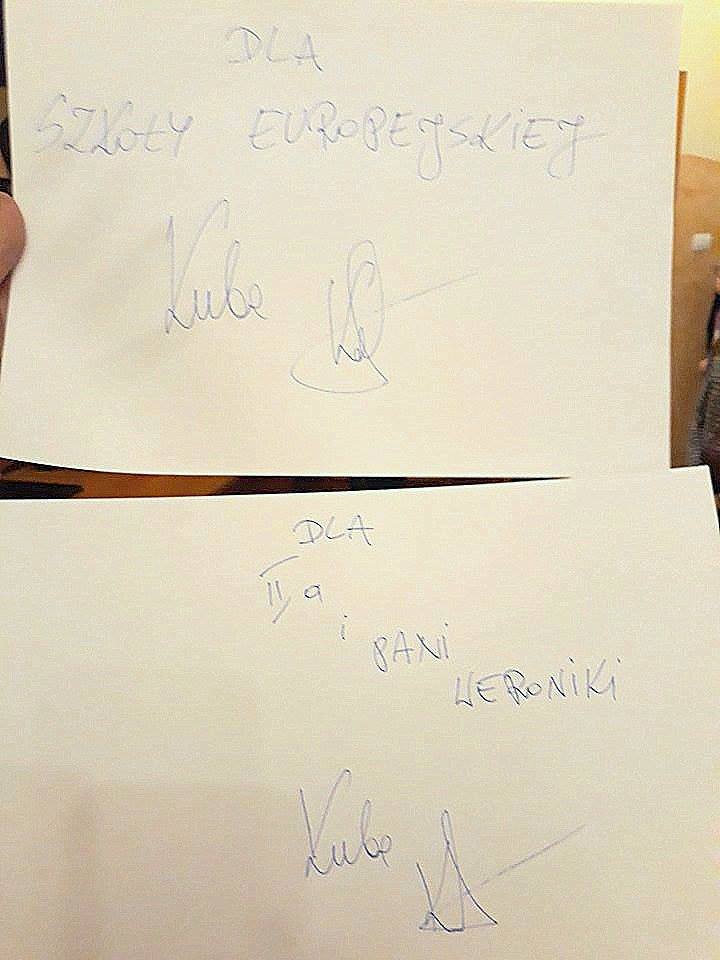 DLA
SZKOŁY EUROPEJSKIEJ
Kuba
DLA
II a
i
PANI
WERONIKI
Kuba